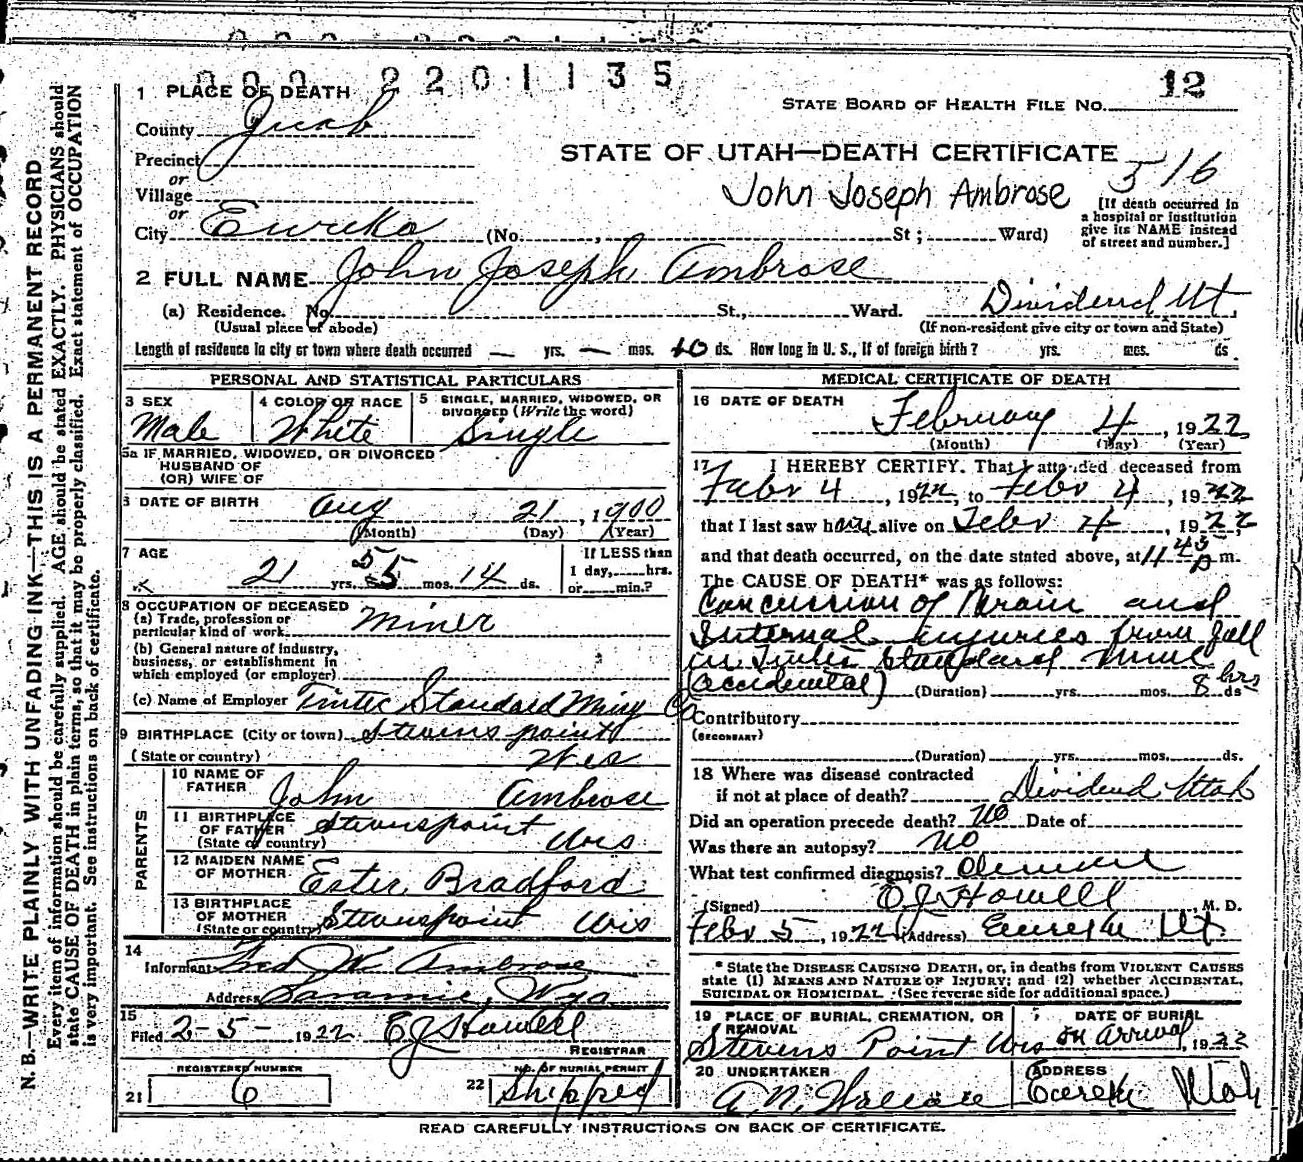 000 2201135
12
1 PLACE OF DEATH
STATE BOARD OF HEALTH FILE NO.
County Juab
STATE OF UTAH—DEATH CERTIFICATE
Precinct
516
or
Village
John Joseph Ambrose
[If death occurred in
a hospital or institution
give its NAME instead
of street and number.]
or
City Eureka (No. , St ; Ward)
2 FULL NAME John Joseph Ambrose
(a) Residence. No. St., Ward. Dividend Ut,
(Usual place of abode) (If non-resident give city or town and State)
Length of residence in city or town where death occurred — yrs. — mos. 10 ds. How long in U. S., if of foreign birth? yrs. mos. ds.
PERSONAL AND STATISTICAL PARTICULARS
3 SEX 4 COLOR OR RACE 5 SINGLE, MARRIED, WIDOWED, OR
DIVORCED (Write the word)
Male White Single
5a IF MARRIED, WIDOWED, OR DIVORCED
HUSBAND OF
(OR) WIFE OF
6 DATE OF BIRTH Aug 21, 1900
(Month) (Day) (Year)
7 AGE If LESS than
21 yrs. 5 mos. 14 ds. 1 day, hrs.
or min.?
8 OCCUPATION OF DECEASED
(a) Trade, profession or
particular kind of work Miner
(b) General nature of industry,
business, or establishment in
which employed (or employer)
(c) Name of Employer Tintic Standard Ming Co
9 BIRTHPLACE (City or town) Stevens point
(State or country) Wis
PARENTS
10 NAME OF
FATHER John Ambrose
11 BIRTHPLACE
OF FATHER Stevenspoint
(State or country) Wis
12 MAIDEN NAME
OF MOTHER Ester Bradford
13 BIRTHPLACE
OF MOTHER
(State or country) Stevenspoint Wis
14
Informant Fred W. Ambrose
Address Laramie, Wyo
15
Filed 2-5- 1922 E J Howell
REGISTRAR
REGISTERED NUMBER NO. OF BURIAL PERMIT
21 6 22 Shipped
MEDICAL CERTIFICATE OF DEATH
16 DATE OF DEATH
February 4, 1922
(Month) (Day) (Year)
17 I HEREBY CERTIFY. That I attended deceased from
Febr 4, 1922, to Febr 4, 1922
that I last saw him alive on Febr 4, 1922,
and that death occurred, on the date stated above, at 11 45 P m.
The CAUSE OF DEATH* was as follows:
Concussion of Brain and
Internal injuries from fall
in Tintic Standard Mine
(accidental) (Duration) yrs. mos. 8 ds hrs
Contributory
(SECONDARY)
(Duration) yrs. mos. ds.
18 Where was disease contracted
if not at place of death? Dividend Utah
Did an operation precede death? No Date of
Was there an autopsy? No
What test confirmed diagnosis? Clinical
(Signed) E J Howell, M. D.
Febr 5, 1922 (Address) Eureka Ut
* State the DISEASE CAUSING DEATH, or, in deaths from VIOLENT CAUSES
state (1) MEANS AND NATURE OF INJURY; and (2) whether ACCIDENTAL,
SUICIDAL OR HOMICIDAL. (See reverse side for additional space.)
19 PLACE OF BURIAL, CREMATION, OR
REMOVAL DATE OF BURIAL
Stevens Point Wis on Arrival, 1922
20 UNDERTAKER ADDRESS
A. N. Wallace Eureka Utah
READ CAREFULLY INSTRUCTIONS ON BACK OF CERTIFICATE.
N. B.—WRITE PLAINLY WITH UNFADING INK—THIS IS A PERMANENT RECORD
Every item of information should be carefully supplied. AGE should be stated EXACTLY. PHYSICIANS should
state CAUSE OF DEATH in plain terms, so that it may be properly classified. Exact statement of OCCUPATION
is very important. See instructions on back of certificate.